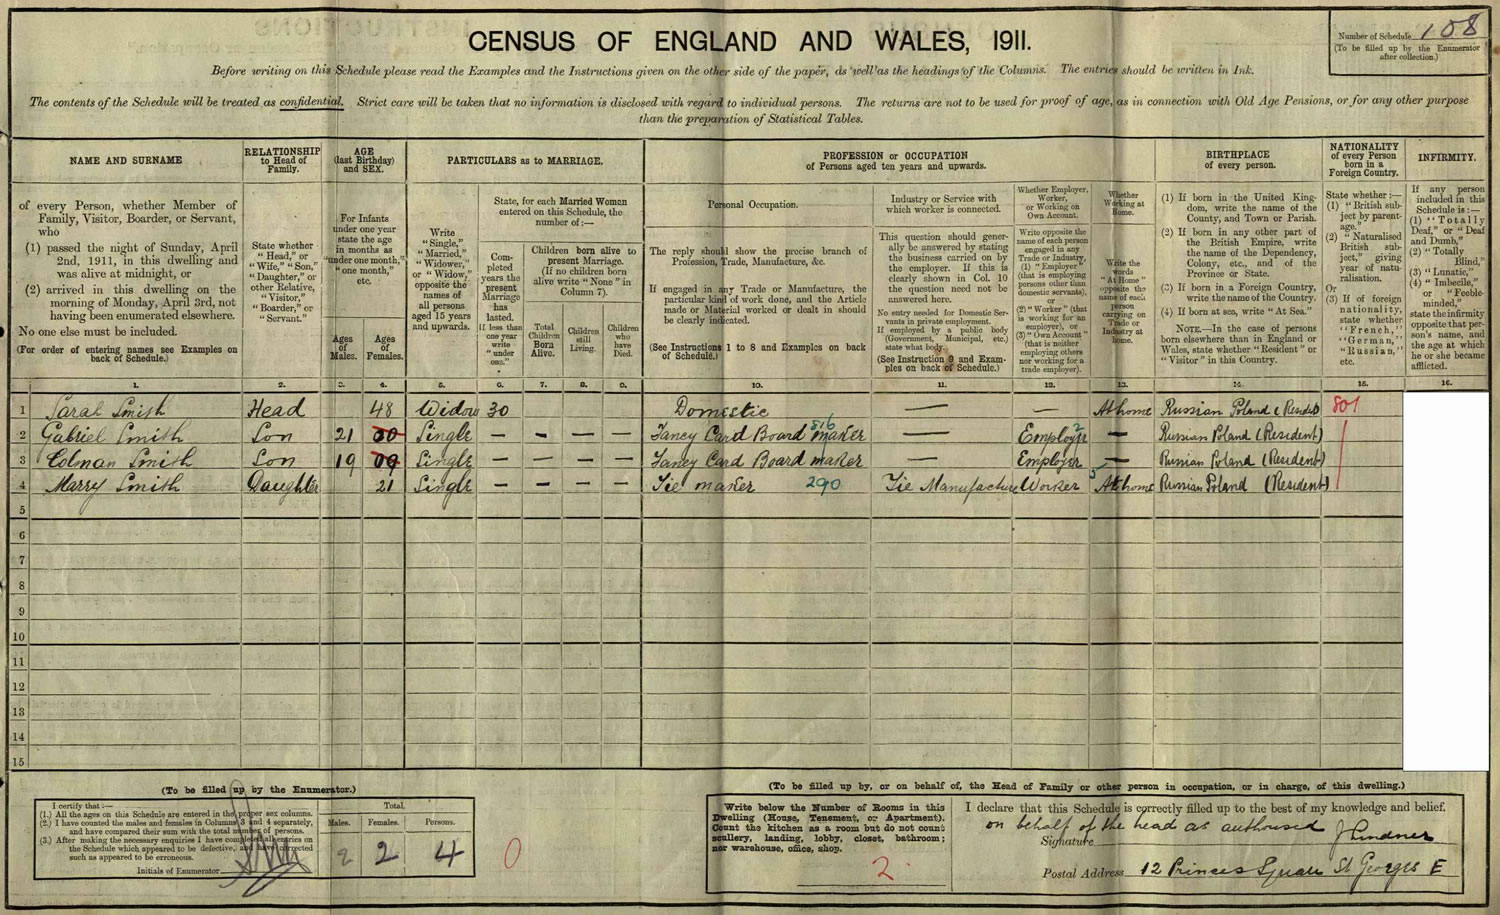 CENSUS OF ENGLAND AND WALES, 1911.
Number of Schedule 108
(To be filled up by the Enumerator
after collection.)
Before writing on this Schedule please read the Examples and the Instructions given on the other side of the paper, as well as the headings of the Columns. The entries should be written in Ink.
The contents of the Schedule will be treated as confidential. Strict care will be taken that no information is disclosed with regard to individual persons. The returns are not to be used for proof of age, as in connection with Old Age Pensions, or for any other purpose
than the preparation of Statistical Tables.
NAME AND SURNAME
of every Person, whether Member of
Family, Visitor, Boarder, or Servant,
who
(1) passed the night of Sunday, April
2nd, 1911, in this dwelling and
was alive at midnight, or
(2) arrived in this dwelling on the
morning of Monday, April 3rd, not
having been enumerated elsewhere.
No one else must be included.
(For order of entering names see Examples on
back of Schedule.)
RELATIONSHIP
to Head of
Family.
State whether
"Head," or
"Wife," "Son,"
"Daughter," or
other Relative,
"Visitor,"
"Boarder," or
"Servant."
AGE
(last Birthday)
and SEX.
For Infants
under one year
state the age
in months as
"under one month,"
"one month,"
etc.
Ages
of
Males.
Ages
of
Females.
PARTICULARS as to MARRIAGE.
Write
"Single,"
"Married,"
"Widower,"
or "Widow,"
opposite the
names of
all persons
aged 15 years
and upwards.
State, for each Married Woman
entered on this Schedule, the
number of:—
Completed
years the
present
Marriage
has
lasted.
If less than
one year
write
"under
one."
Children born alive to
present Marriage.
(If no children born
alive write "None" in
Column 7).
Total
Children
Born
Alive.
Children
still
Living.
Children
who
have
Died.
PROFESSION or OCCUPATION
of Persons aged ten years and upwards.
Personal Occupation.
The reply should show the precise branch of
Profession, Trade, Manufacture, &c.
If engaged in any Trade or Manufacture, the
particular kind of work done, and the Article
made or Material worked or dealt in should
be clearly indicated.
(See Instructions 1 to 8 and Examples on back
of Schedule.)
Industry or Service with
which worker is connected.
This question should generally
be answered by stating
the business carried on by
the employer. If this is
clearly shown in Col. 10
the question need not be
answered here.
No entry needed for Domestic Servants
in private employment.
If employed by a public body
(Government, Municipal, etc.)
state what body.
(See Instruction 9 and Examples
on back of Schedule.)
Whether Employer,
Worker,
or Working on
Own Account.
Write opposite the
name of each person
engaged in any
Trade or Industry,
(1) "Employer"
(that is employing
persons other than
domestic servants),
or
(2) "Worker" (that
is working for an
employer), or
(3) "Own Account"
(that is neither
employing others
nor working for a
trade employer).
Whether
Working at
Home.
Write the
words
"At Home"
opposite the
name of each
person
carrying on
Trade or
Industry at
home.
BIRTHPLACE
of every person.
(1) If born in the United Kingdom,
write the name of the
County, and Town or Parish.
(2) If born in any other part of
the British Empire, write
the name of the Dependency,
Colony, etc., and of the
Province or State.
(3) If born in a Foreign Country,
write the name of the Country.
(4) If born at sea, write "At Sea."
NOTE.—In the case of persons
born elsewhere than in England or
Wales, state whether "Resident" or
"Visitor" in this Country.
NATIONALITY
of every Person
born in a
Foreign Country.
State whether:—
(1) "British subject
by parentage."
(2) "Naturalised
British subject,"
giving
year of naturalisation.
Or
(3) If of foreign
nationality,
state whether
"French,"
"German,"
"Russian,"
etc.
INFIRMITY.
If any person
included in this
Schedule is:—
(1) "Totally
Deaf," or "Deaf
and Dumb,"
(2) "Totally
Blind,"
(3) "Lunatic,"
(4) "Imbecile,"
or "Feeble-minded,"
state the infirmity
opposite that person's
name, and
the age at which
he or she became
afflicted.
1. 2. 3. 4. 5. 6. 7. 8. 9. 10. 11. 12. 13. 14. 15. 16.
1 Sarah Smith Head 48 Widow 30 Domestic — — At home Russian Poland (Resident 801
2 Gabriel Smith Son 21 20 Single – – – – Fancy Card Board maker 816 — Employer 2 — Russian Poland (Resident)
3 Colman Smith Son 19 09 Single – – – – Fancy Card Board maker — Employer — Russian Poland (Resident)
4 Marry Smith Daughter 21 Single – – – – Tie maker 290 Tie Manufacture Worker 5 At home Russian Poland (Resident)
5
6
7
8
9
10
11
12
13
14
15
(To be filled up by the Enumerator.)
I certify that:—
(1.) All the ages on this Schedule are entered in the proper sex columns.
(2.) I have counted the males and females in Columns 3 and 4 separately,
and have compared their sum with the total number of persons.
(3.) After making the necessary enquiries I have completed all entries on
the Schedule which appeared to be defective, and have corrected
such as appeared to be erroneous.
Initials of Enumerator
Total.
Males. Females. Persons.
2 2 4
0
(To be filled up by, or on behalf of, the Head of Family or other person in occupation, or in charge, of this dwelling.)
Write below the Number of Rooms in this
Dwelling (House, Tenement, or Apartment).
Count the kitchen as a room but do not count
scullery, landing, lobby, closet, bathroom;
nor warehouse, office, shop.
2
I declare that this Schedule is correctly filled up to the best of my knowledge and belief.
on behalf of the head as authorised
Signature J Lindner
Postal Address 12 Princes Square St Georges E